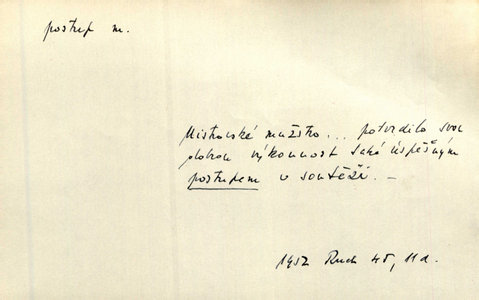 postup m.
Mistrovské mužstvo... potvrdilo svou
dobrou výkonnost také úspěšným
postupem v soutěži. –
1952 Ruch 45, 11d.